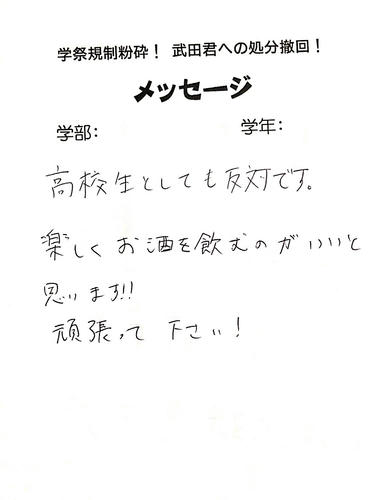 学祭規制粉砕！ 武田君への処分撤回！
メッセージ
学部: 学年:
高校生としても反対です。
楽しくお酒を飲むのがいいと
思います!!
頑張って下さい！